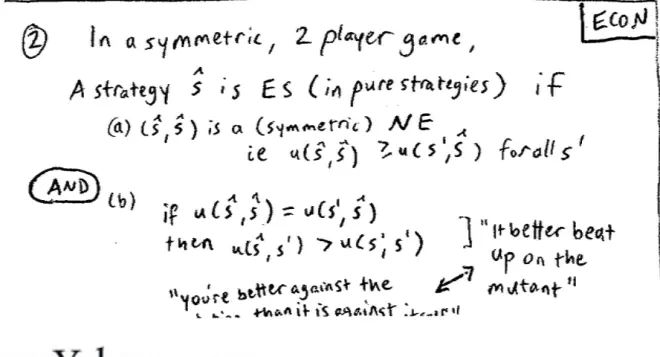 ECON
② In a symmetric, 2 player game,
A strategy ŝ is ES (in pure strategies) if
(a) (ŝ, ŝ) is a (symmetric) NE
ie u(ŝ, ŝ) ≥ u(s', ŝ) for all s'
AND (b) if u(ŝ, ŝ) = u(s', ŝ)
then u(ŝ, s') > u(s', s') ] "It better beat
up on the
mutant"
"you're better against the
than it is against itself"